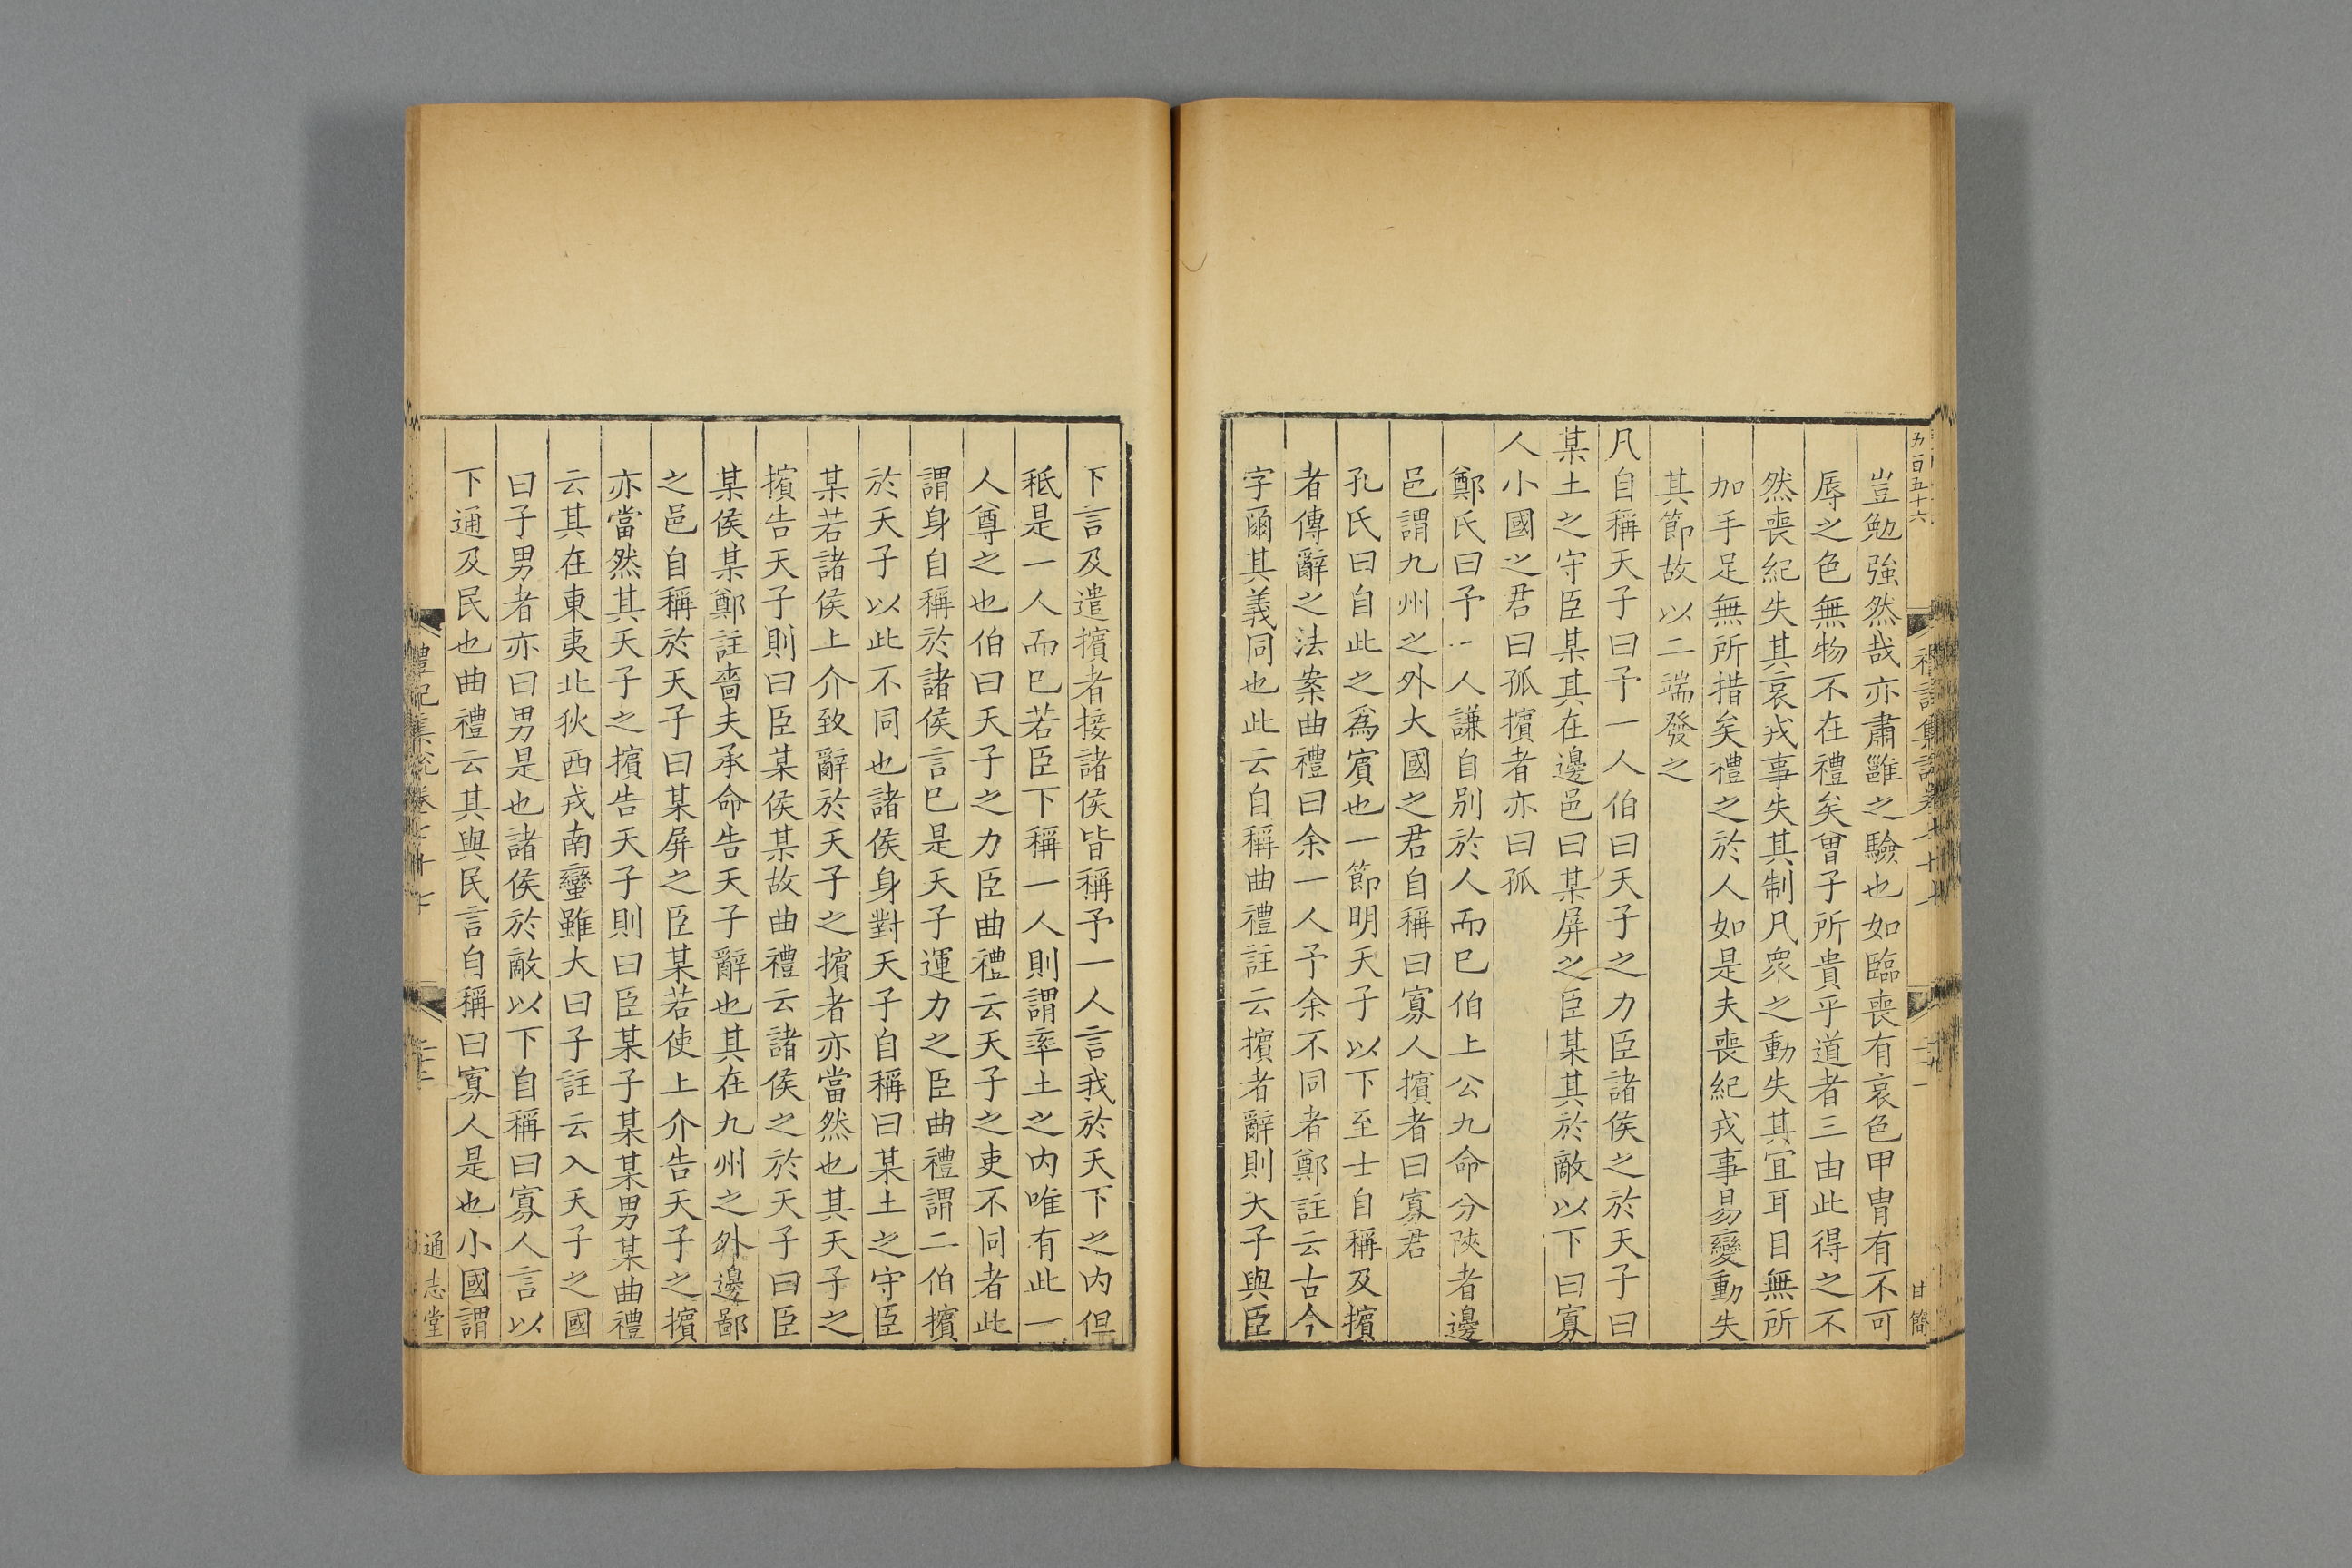 五百五十六
豈勉強然哉亦肅雝之驗也如臨喪有哀色甲冑有不可
辱之色無物不在禮矣曾子所貴乎道者三由此得之不
然喪紀失其哀戎事失其制凡衆之動失其宜耳目無所
加手足無所措矣禮之於人如是夫喪紀戎事易變動失
其節故以二端發之
凡自稱天子曰予一人伯曰天子之力臣諸侯之於天子曰
某土之守臣某其在邊邑曰某屏之臣某其於敵以下曰寡
人小國之君曰孤擯者亦曰孤
鄭氏曰予一人謙自别於人而已伯上公九命分陝者邊
邑謂九州之外大國之君自稱曰寡人擯者曰寡君
孔氏曰自此之爲賔也一節明天子以下至士自稱及擯
者傳辭之法案曲禮曰余一人予余不同者鄭註云古今
字爾其義同也此云自稱曲禮註云擯者辭則天子與臣
甘簡
下言及遣擯者接諸侯皆稱予一人言我於天下之内但
秖是一人而已若臣下稱一人則謂率土之内唯有此一
人尊之也伯曰天子之力臣曲禮云天子之吏不同者此
謂身自稱於諸侯言已是天子運力之臣曲禮謂二伯擯
於天子以此不同也諸侯身對天子自稱曰某土之守臣
某若諸侯上介致辭於天子之擯者亦當然也其天子之
擯告天子則曰臣某侯某故曲禮云諸侯之於天子曰臣
某侯某鄭註嗇夫承命告天子辭也其在九州之外邊鄙
之邑自稱於天子曰某屏之臣某若使上介告天子之擯
亦當然其天子之擯告天子則曰臣某子某某男某曲禮
云其在東夷北狄西戎南蠻雖大曰子註云入天子之國
曰子男者亦曰男是也諸侯於敵以下自稱曰寡人言以
下通及民也曲禮云其與民言自稱曰寡人是也小國謂
禮記集說卷七十七
通志堂